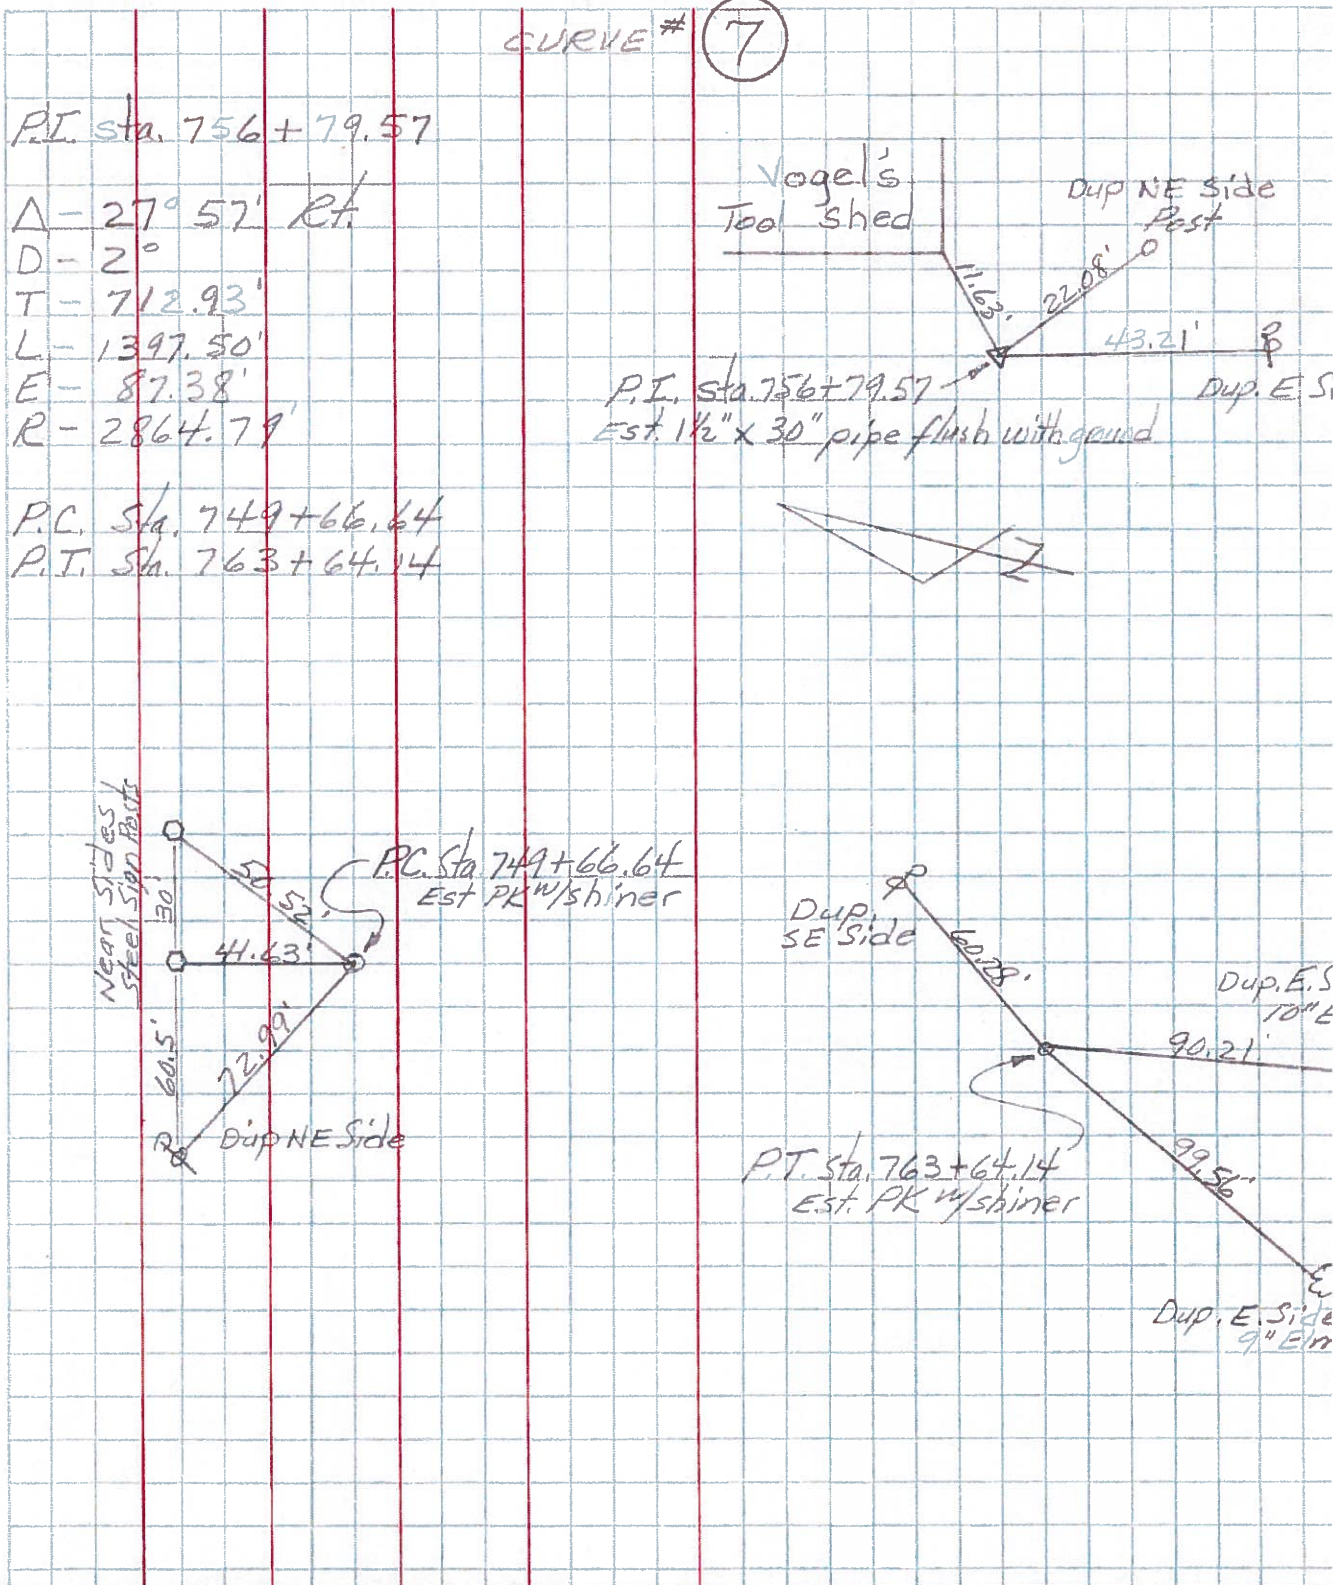 CURVE # 7
P.I. sta. 756+79.57
Δ - 27° 57' Rt.
D - 2°
T - 712.93'
L - 1397.50'
E - 87.38'
R - 2864.79'
P.C. Sta. 749+66.64
P.T. Sta. 763+64.14
Vogel's
Tool Shed
Dup NE Side
Post
11.63'
22.08'
43.21'
Dup. E. Si
P.I. sta. 756+79.57
Est. 1½" x 30" pipe flush with ground
Near Sides
Steel Sign Posts
30'
52.52'
P.C. Sta 749+66.64
Est PK w/shiner
41.63'
60.5'
72.99'
Dup NE Side
Dup.
SE Side
60.28'
Dup. E. S
10" E
90.21'
P.T. Sta. 763+64.14
Est. PK w/shiner
99.56'
Dup. E. Side
9" Elm